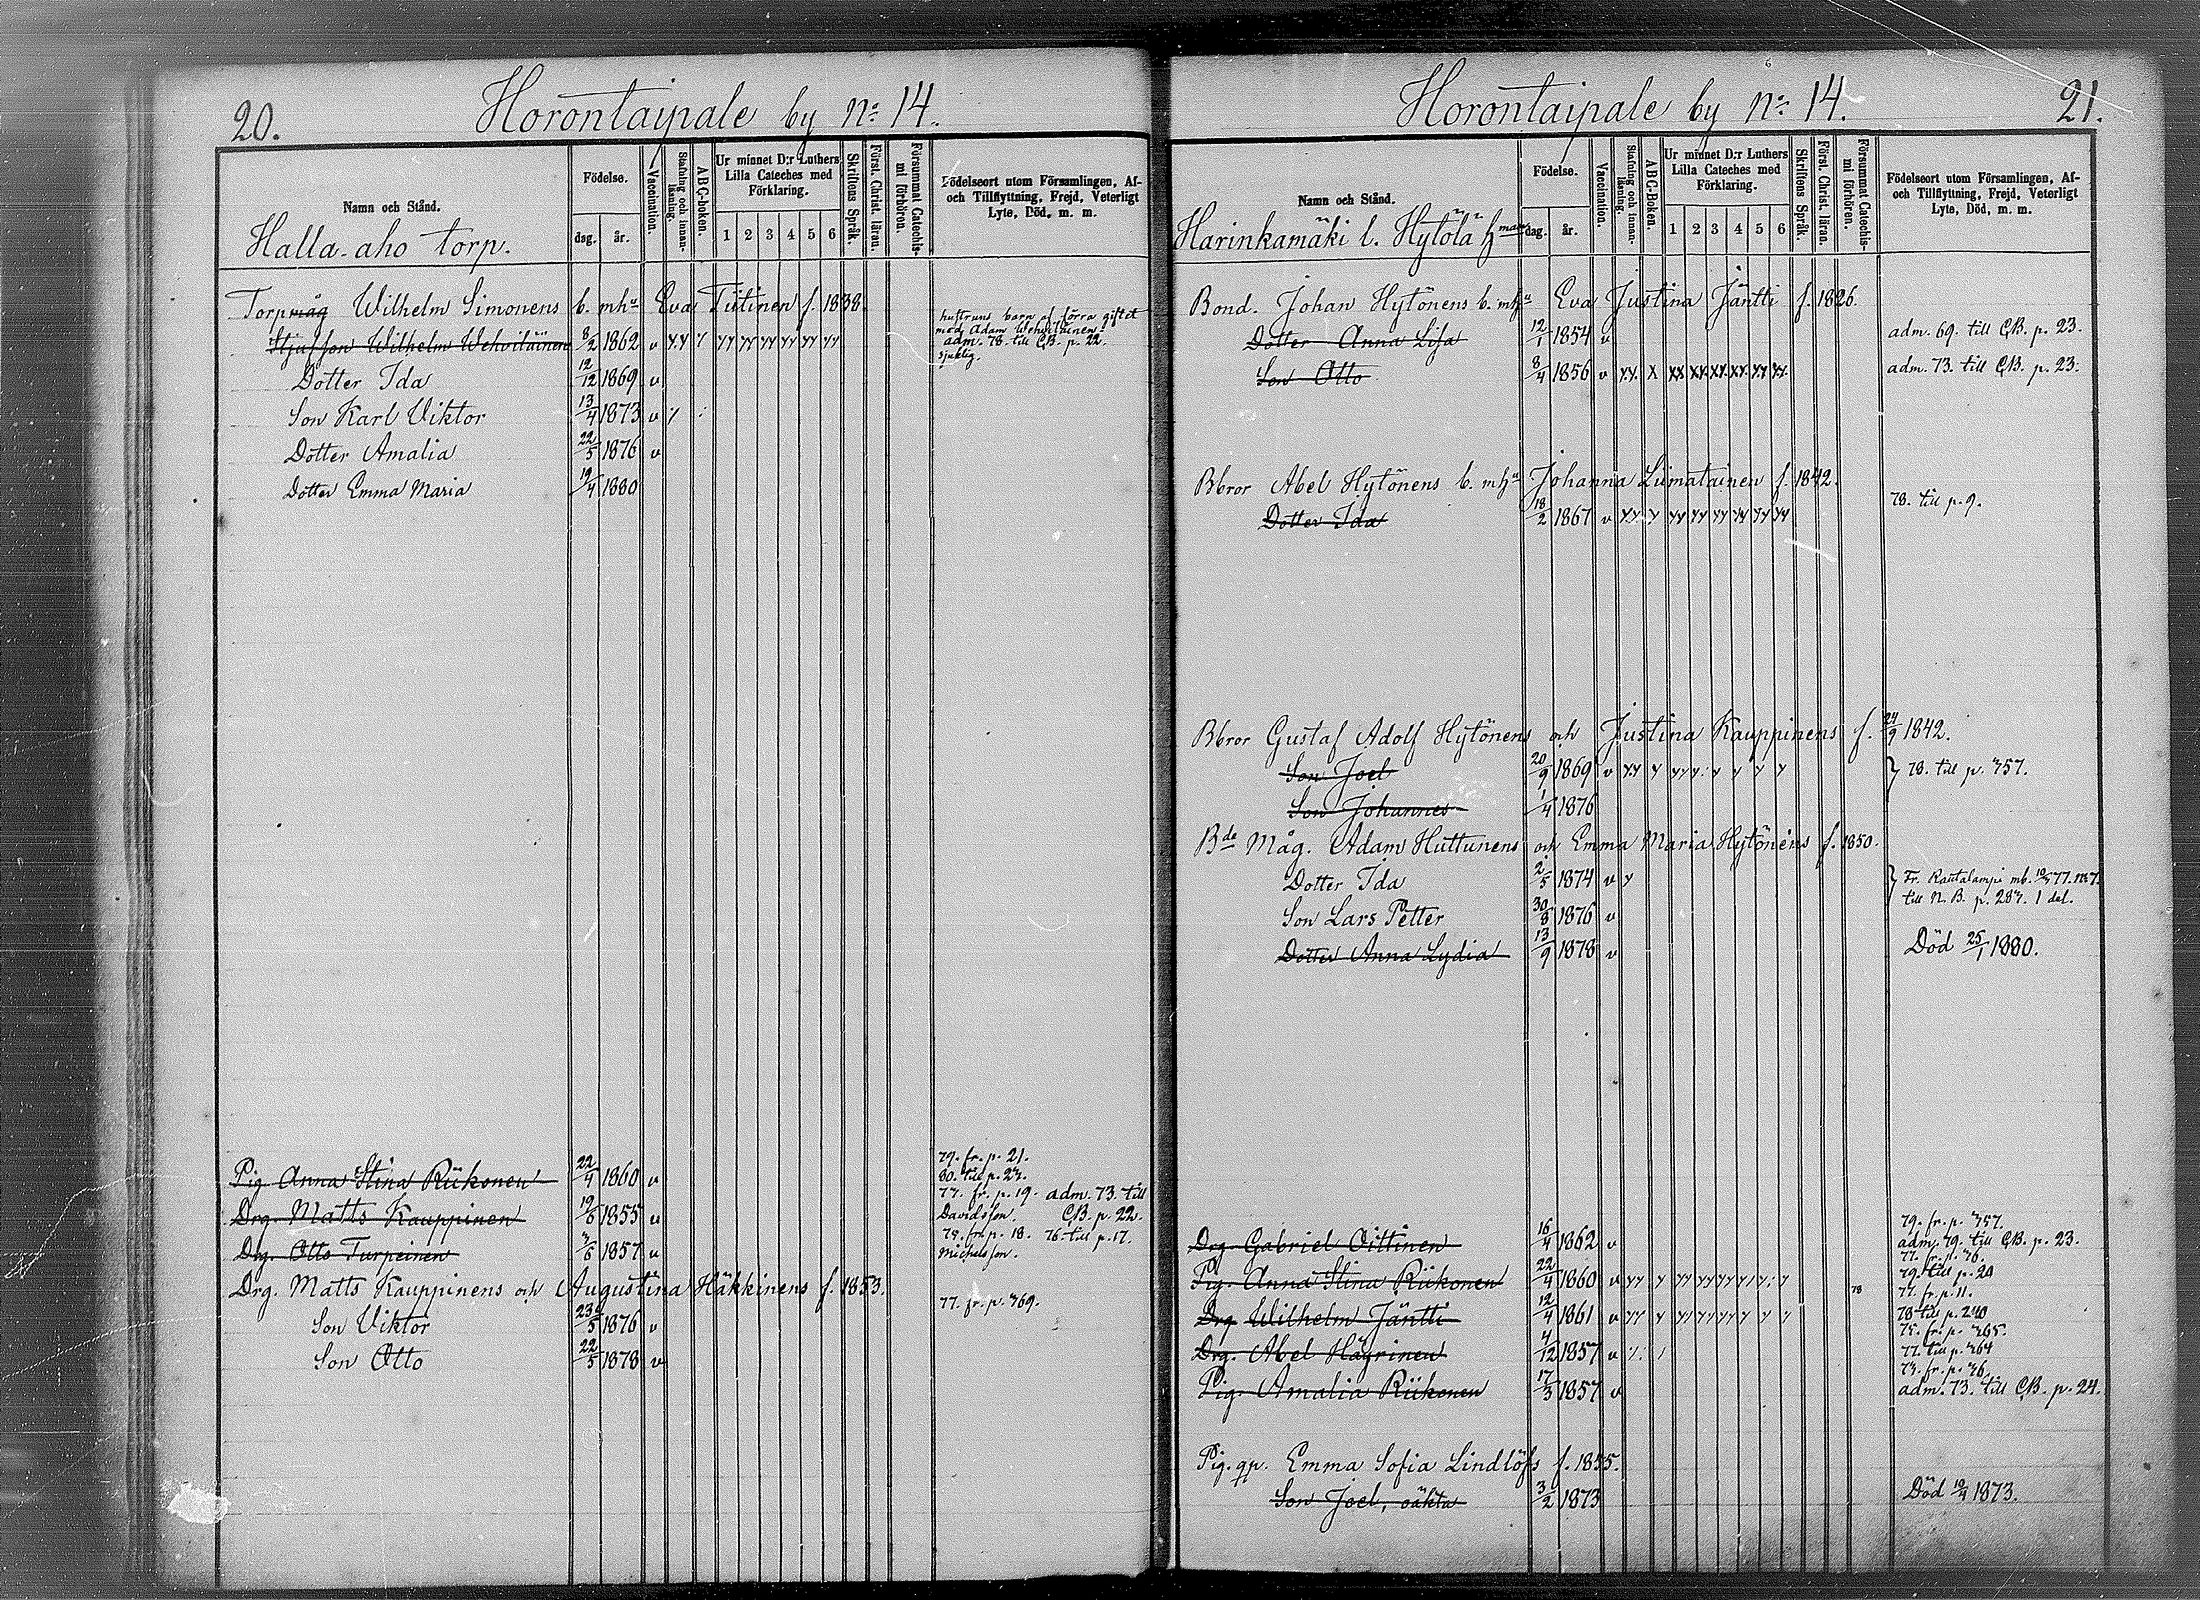 20.
Horontaipale by No: 14.
Namn och Stånd.
Födelse.
dag.
år.
Vaccination.
Stafning och innan-läsning.
ABC-boken.
Ur minnet D:r Luthers Lilla Cateches med Förklaring.
1 2 3 4 5 6
Skriftens Språk.
Först. Christ. läran.
Försummat Catechis-mi förhören.
Födelseort utom Församlingen, Af- och Tillflyttning, Frejd, Veterligt Lyte, Död, m. m.
Halla-aho torp.
Torpmåg Wilhelm Simonens b. m hu Eva Tiitinen f. 1838.
hustruns barn af förra giftet
med Adam Wehviläinen.
Stjufson Wilhelm Wehviläinen 8/2 1862 v adm. 78. till CB. p. 22.
sjuklig.
Dotter Ida 12/12 1869 v
Son Karl Viktor 13/4 1873 v
Dotter Amalia 22/5 1876 v
Dotter Emma Maria 19/4 1880
79. fr. p. 21.
Pig. Anna Stina Riikonen 22/4 1860 v 80. till p. 27.
77. fr. p. 19. adm. 73. till
Drg. Matts Kauppinen 19/6 1855 v Davidsson. CB. p. 22.
75. fr. p. 18. 76. till p. 17.
Drg. Otto Turpeinen 1857 v Michelsson.
Drg. Matts Kauppinens och Augustina Häkkinens f. 1853.
77. fr. p. 369.
Son Viktor 23/5 1876 v
Son Otto 22/5 1878 v
21.
Horontaipale by No: 14.
Namn och Stånd.
Födelse.
dag.
år.
Vaccination.
Stafning och innan-läsning.
ABC-Boken.
Ur minnet D:r Luthers Lilla Cateches med Förklaring.
1 2 3 4 5 6
Skriftens Språk.
Först. Christ. läran.
Försummat Catechis-mi förhören.
Födelseort utom Församlingen, Af- och Tillflyttning, Frejd, Veterligt Lyte, Död, m. m.
Harinkamäki l. Hytölä hman
Bond. Johan Hytönens b. m hu Eva Justina Jäntti f. 1826.
Dotter Anna Lisa 12/1 1854 v adm. 69. till CB. p. 23.
Son Otto 8/4 1856 v adm. 73. till CB. p. 23.
Bbror Abel Hytönens b. m hu Johanna Liimatainen f. 1842.
Dotter Ida 18/2 1867 v 78. till p. 9.
Bbror Gustaf Adolf Hytönens och Justina Kauppinens f. 24/9 1842.
Son Joel 20/9 1869 v } 78. till p. 357.
Son Johannes 1/4 1876
Bde Måg. Adam Huttunens och Emma Maria Hytönens f. 1850.
Dotter Ida 2/5 1874 v } Fr. Rautalampi mb. 77.
Son Lars Petter 30/8 1876 v till N. B. p. 287. 1 del.
Dotter Anna Lydia 13/9 1878 v Död 25/1 1880.
79. fr. p. 357.
Drg. Gabriel Oittinen 16/4 1862 v adm. 79. till CB. p. 23.
77. fr. p. 36.
Pig. Anna Stina Riikonen 22/4 1860 v 79. till p. 20
77. fr. p. 11.
Drg Wilhelm Jäntti 12/4 1861 v 78 78 till p. 240
75. fr. p. 365.
Drg. Abel Häyrinen 4/12 1857 v 77. till p. 364
73. fr. p. 36.
Pig. Amalia Riikonen 17/3 1857 v adm. 73. till CB. p. 24.
Pig. qp. Emma Sofia Lindlöfs f. 1855.
Son Joel, oäkta 3/2 1873 Död 1873.